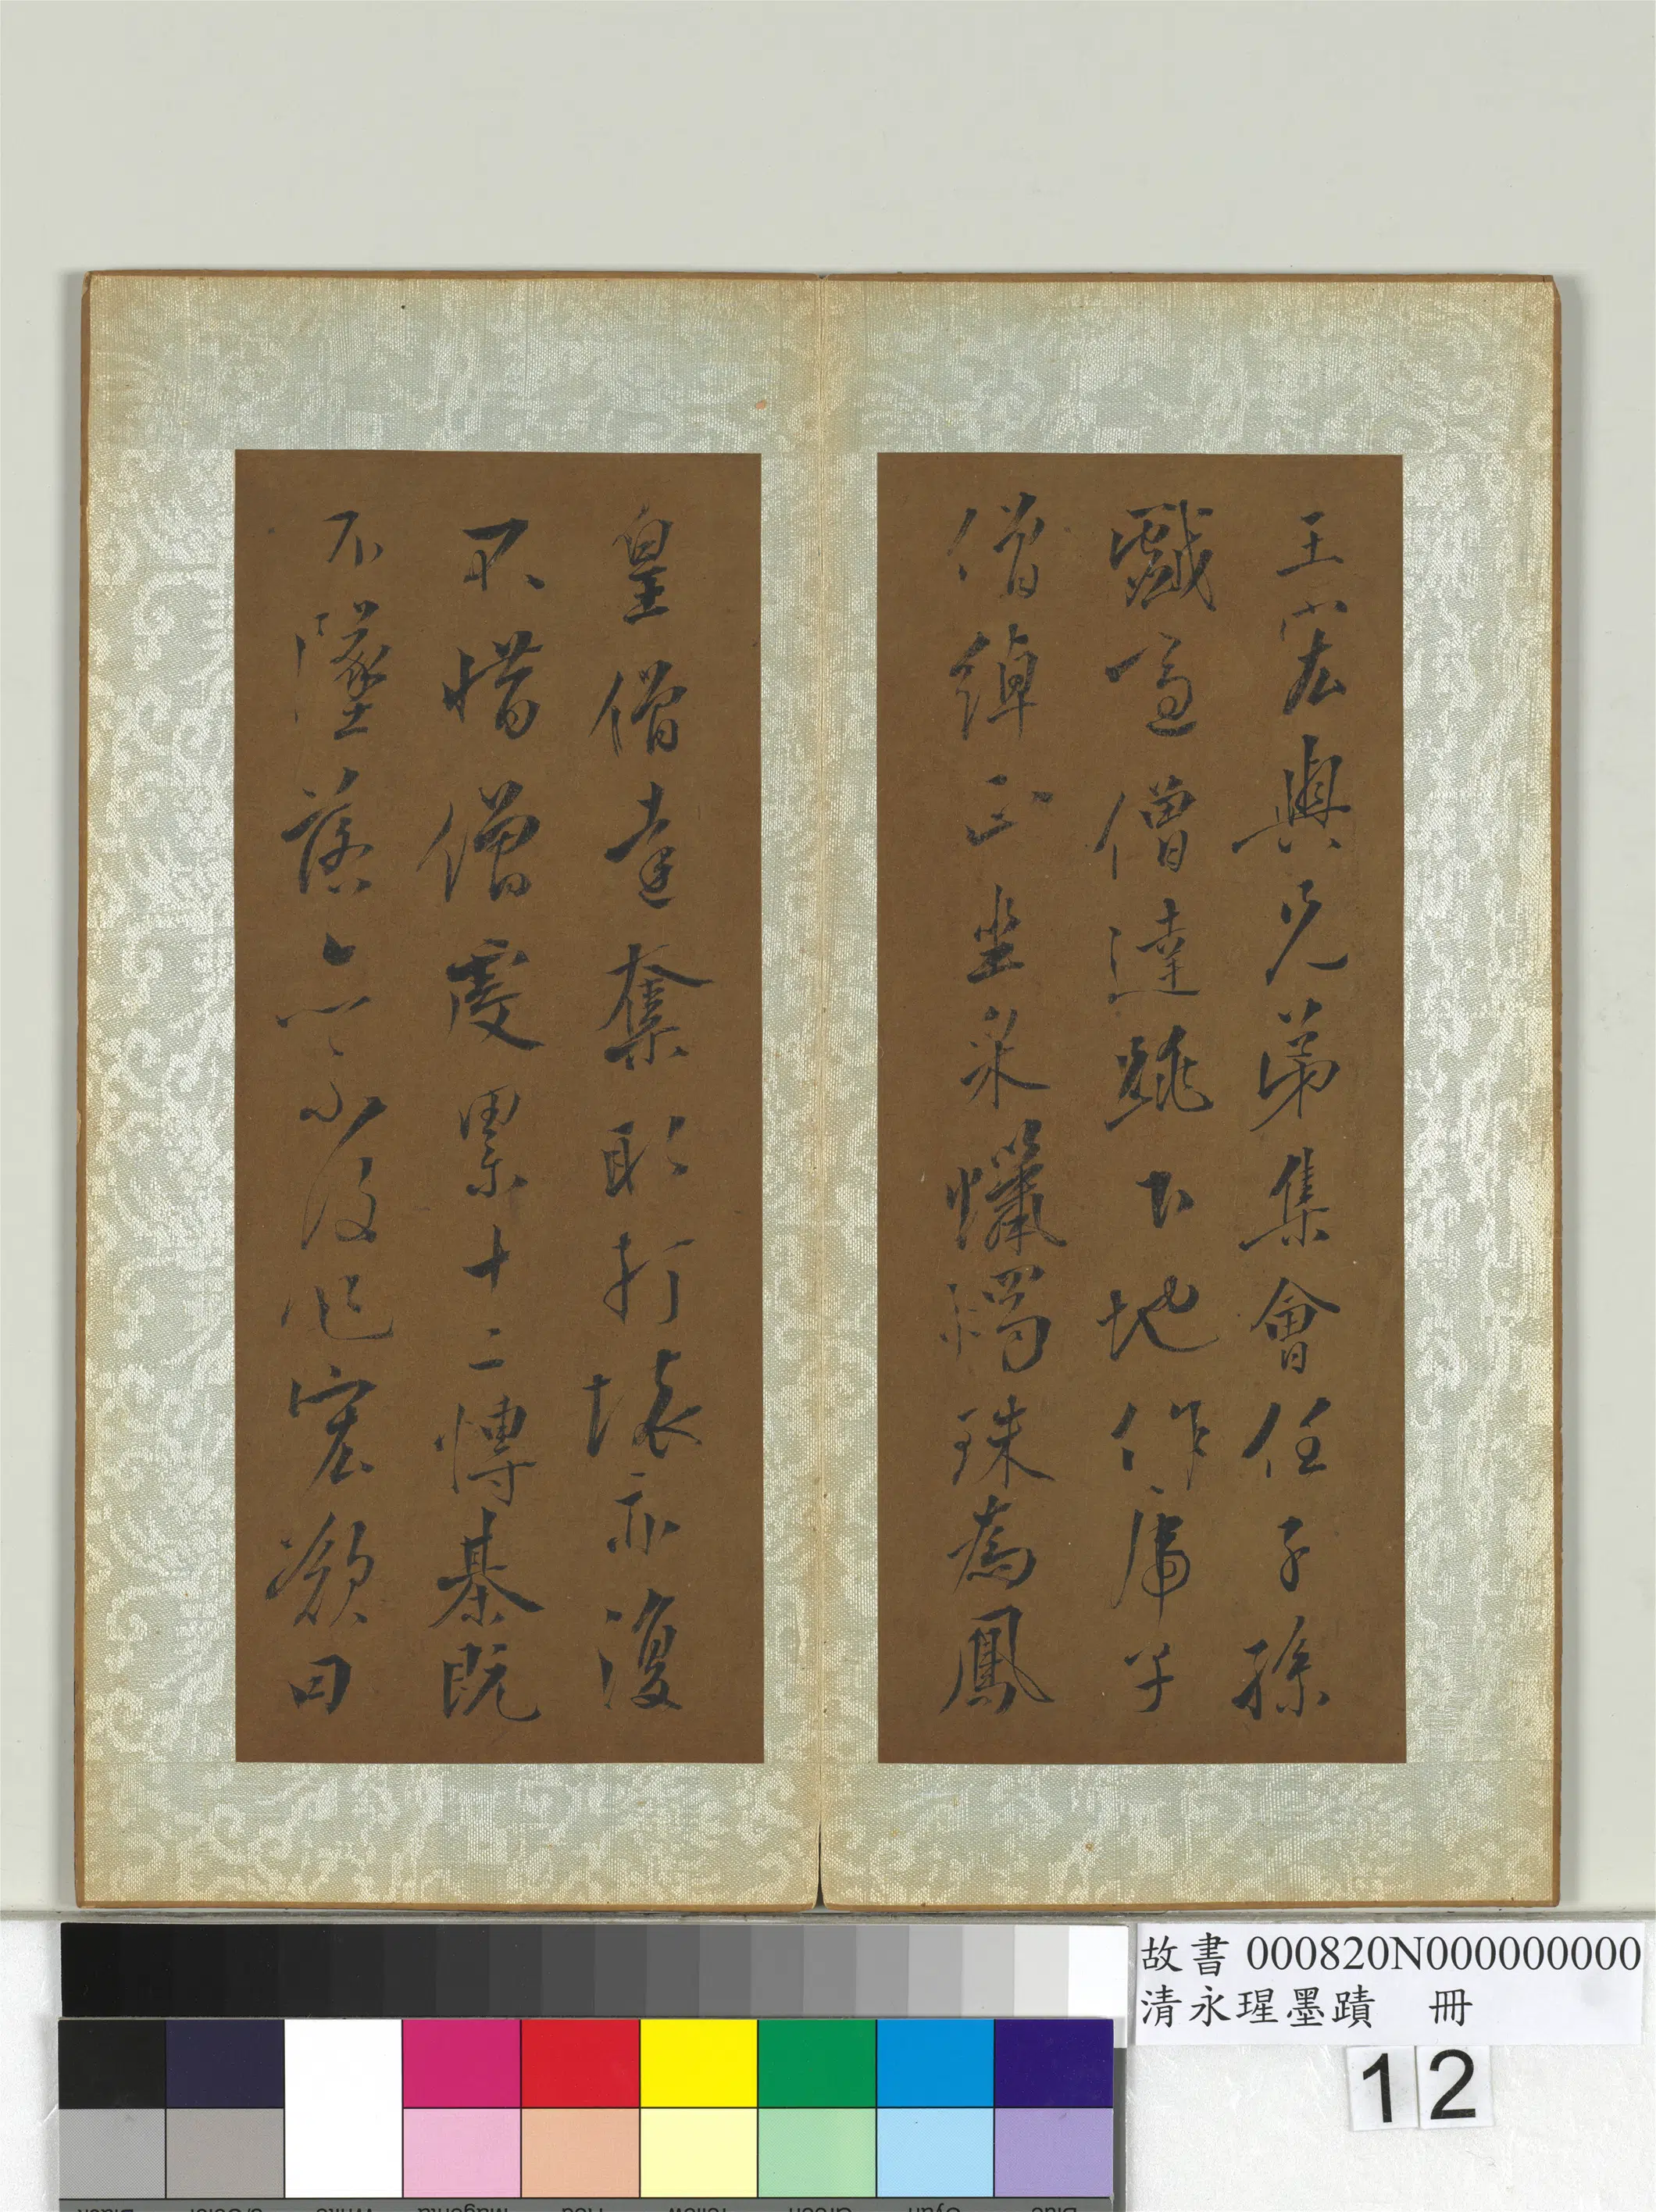 王宏與兄弟集會任子孫
戲適僧達跳下地作虎子
僧綽正坐采蠟燭珠為鳳
皇僧達奪取打壞亦復
不惜僧虔累十二博棊既
不墜落亦不復作宏歎曰
故書 000820N000000000
清永瑆墨蹟 冊
12